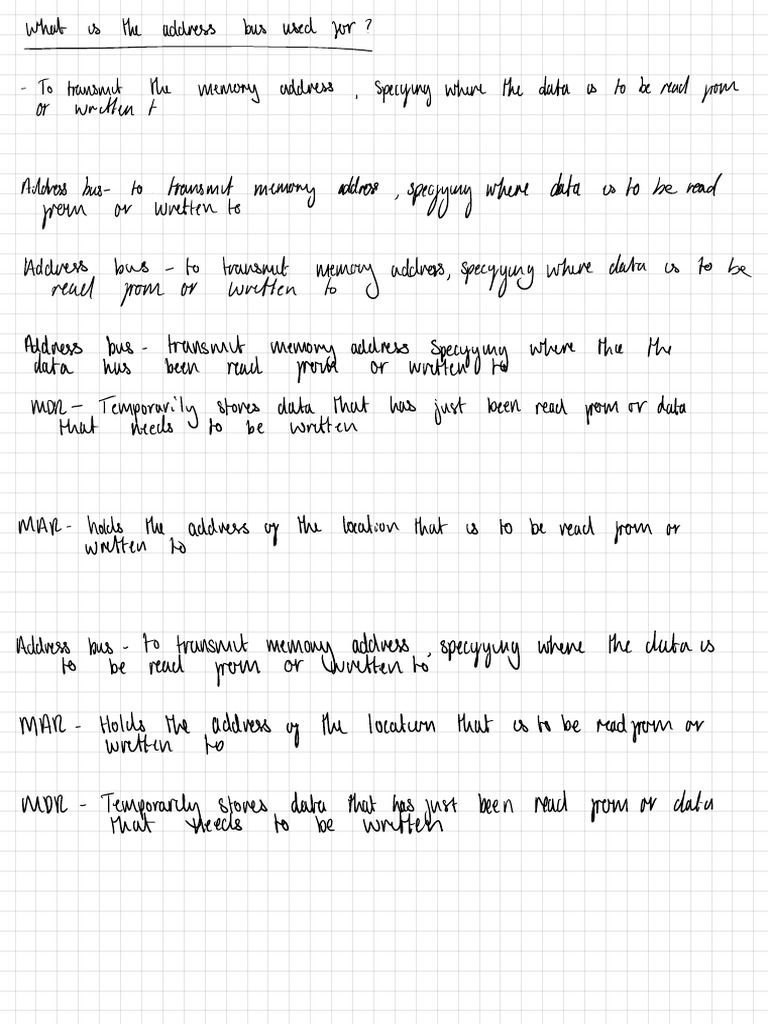 What is the address bus used for?
- To transmit the memory address, specifying where the data is to be read from
or written t
Address bus- to transmit memory address, specifying where data is to be read
from or written to
Address bus - to transmit memory address, specifying where data is to be
read from or written to
Address bus - transmit memory address specifying where the the
data has been read from or written to
MDR - Temporarily stores data that has just been read from or data
that needs to be written
MAR - holds the address of the location that is to be read from or
written to
Address bus - to transmit memory address, specifying where the data is
to be read from or written to
MAR - Holds the address of the location that is to be read from or
written to
MDR - Temporarily stores data that has just been read from or data
that needs to be written